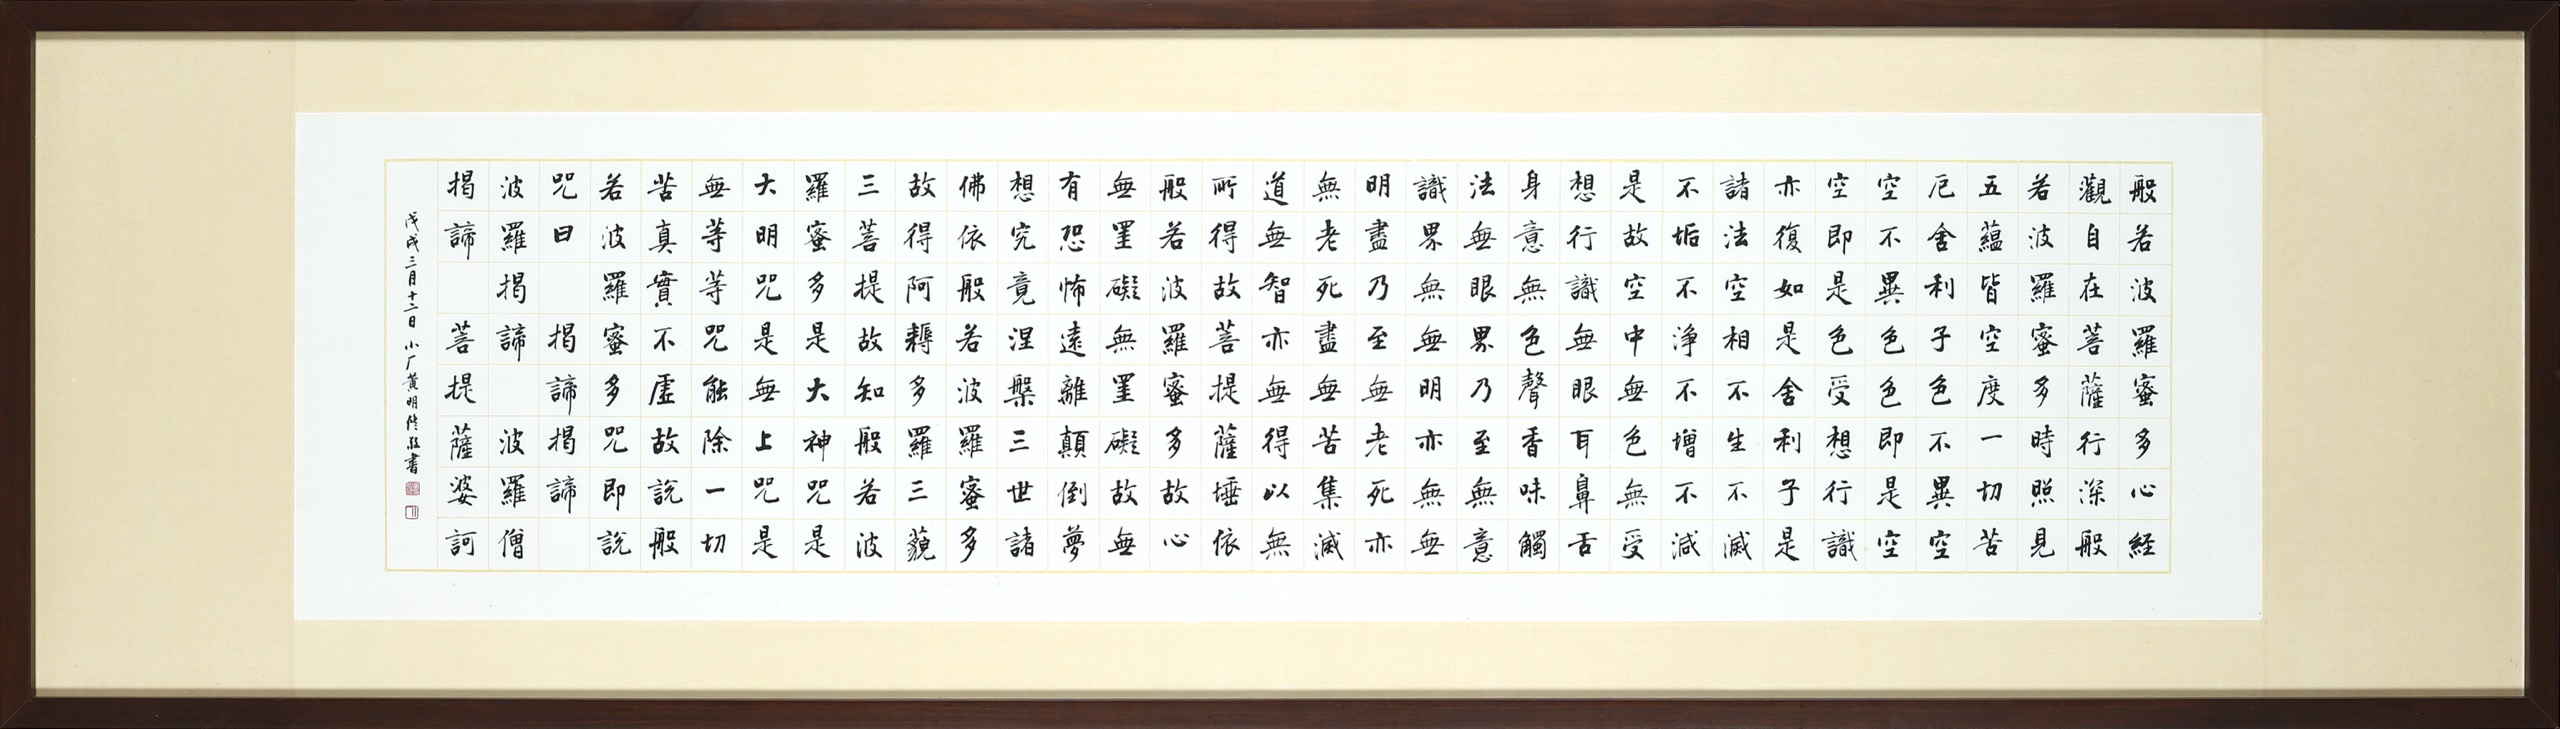 般若波羅蜜多心経
觀自在菩薩行深般
若波羅蜜多時照見
五蘊皆空度一切苦
厄舍利子色不異空
空不異色色即是空
空即是色受想行識
亦復如是舍利子是
諸法空相不生不滅
不垢不淨不增不減
是故空中無色無受
想行識無眼耳鼻舌
身意無色聲香味觸
法無眼界乃至無意
識界無無明亦無無
明盡乃至無老死亦
無老死盡無苦集滅
道無智亦無得以無
所得故菩提薩埵依
般若波羅蜜多故心
無罣礙無罣礙故無
有恐怖遠離顛倒夢
想究竟涅槃三世諸
佛依般若波羅蜜多
故得阿耨多羅三藐
三菩提故知般若波
羅蜜多是大神咒是
大明咒是無上咒是
無等等咒能除一切
苦真實不虛故說般
若波羅蜜多咒即說
咒曰 揭諦揭諦
波羅揭諦 波羅僧
揭諦 菩提薩婆訶
戊戌三月十二日小厂黃明修敬書